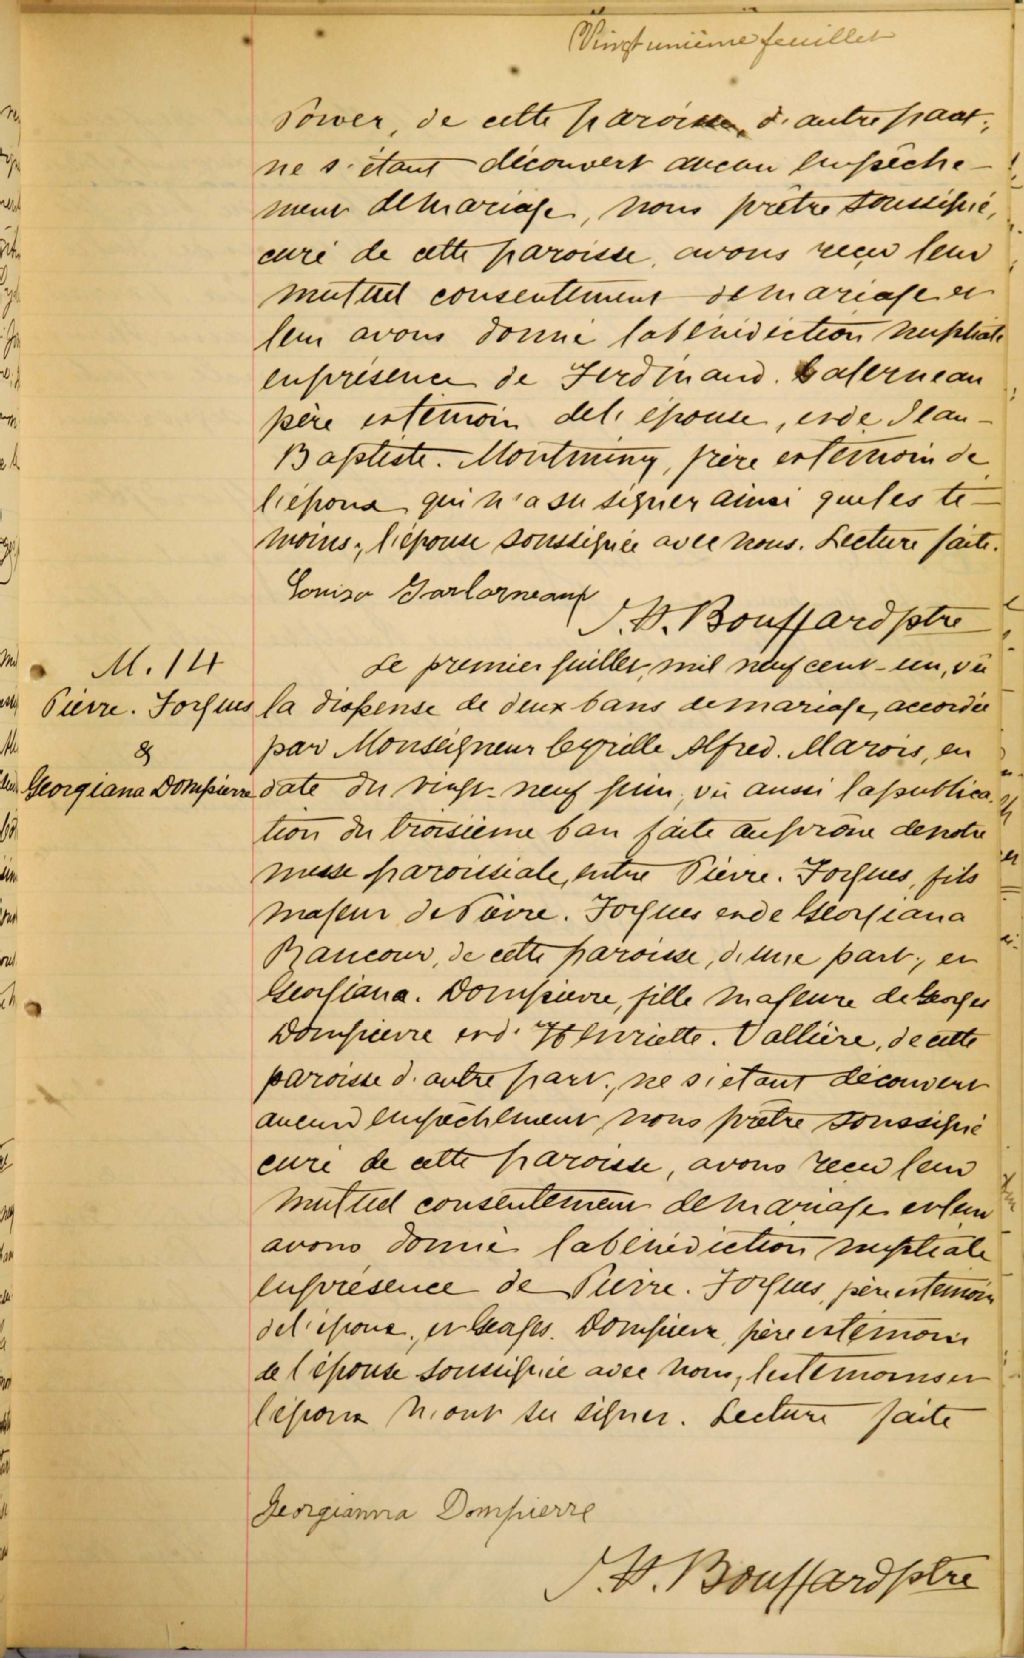 Vingt unième feuillet
Power, de cette paroisse, d'autre part,
ne s'étant découvert aucun empêche-
ment de mariage, nous prêtre soussigné,
curé de cette paroisse, avons reçu leur
mutuel consentement de mariage et
leur avons donné la bénédiction nuptiale
en présence de Ferdinand. Galerneau
père et témoin de l'épouse, et de Jean-
Baptiste. Montminy, frère et témoin de
l'époux qui n'a su signer ainsi que les té-
moins, l'épouse soussignée avec nous. Lecture faite.
Louisa
J. H. Bouffard ptre
M. 14
Pierre. Forgues
&
Georgiana Dompierre
Le premier juillet, mil neuf cent-un, vû
la dispense de deux bans de mariage, accordée
par Monseigneur Cyrille Alfred. Marois, en
date du vingt-neuf juin, vû aussi la publica-
tion du troisième ban faite au prône de notre
messe paroissiale, entre Pierre. Forgues, fils
majeur de Pierre. Forgues et de Georgiana
Rancour, de cette paroisse, d'une part, et
Georgiana. Dompierre, fille majeure de Georges
Dompierre et d'Henriette. Vallière, de cette
paroisse d'autre part, ne s'étant découvert
aucun empêchement, nous prêtre soussigné
curé de cette paroisse, avons reçu leur
mutuel consentement de mariage et leur
avons donné la bénédiction nuptiale
en présence de Pierre. Forgues, père et témoin
de l'époux, et Georges. Dompierre, père et témoin
de l'épouse soussignée avec nous, les témoins et
l'époux n'ont su signer. Lecture faite
Georgianna Dompierre
J. H. Bouffard ptre